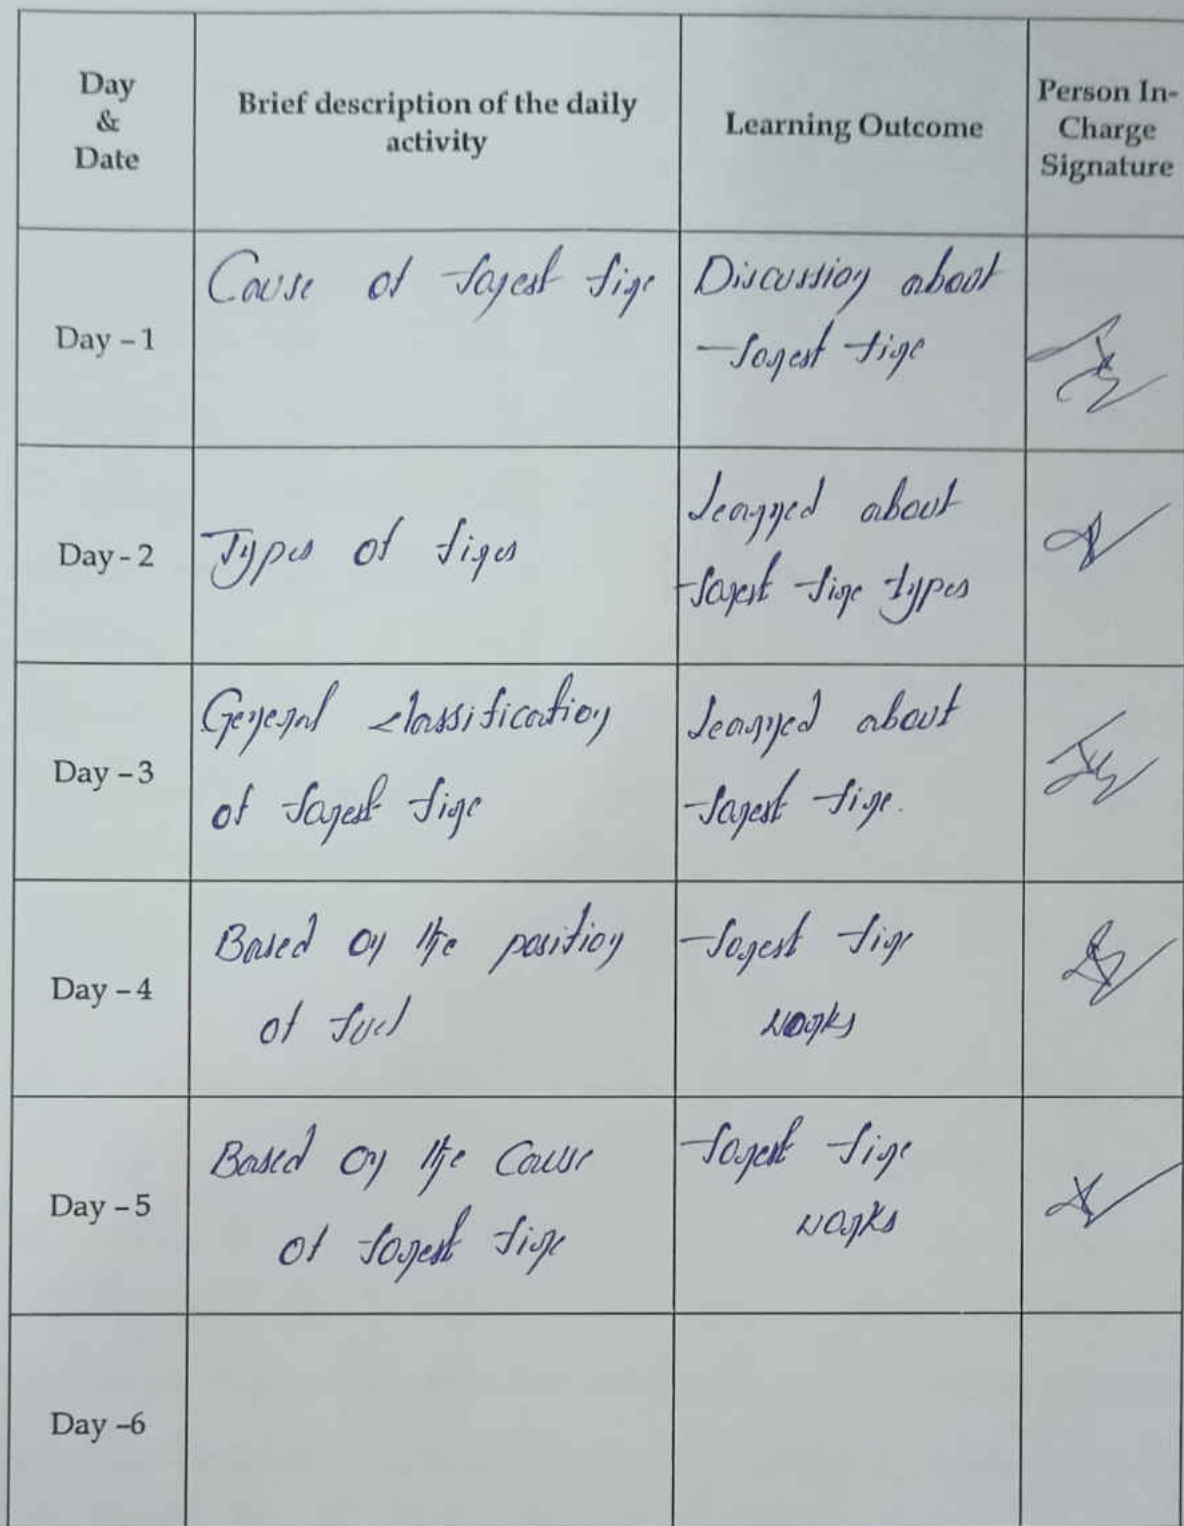 Day
&
Date
Brief description of the daily
activity
Learning Outcome
Person In-
Charge
Signature
Day – 1
Cause of forest fire
Discussion about
forest fire
Day - 2
Types of fires
Learned about
forest fire types
Day – 3
General classification
of forest fire
Learned about
forest fire.
Day – 4
Based on the position
of fuel
forest fire
works
Day – 5
Based on the Cause
of forest fire
forest fire
works
Day –6